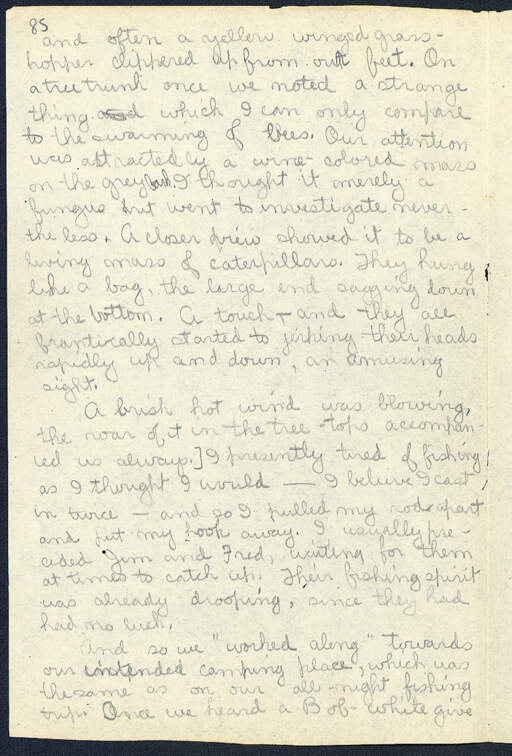 85
and often a yellow winged grass-
hopper clippered up from our feet. On
a tree trunk once we noted a strange
thing which I can only compare
to the swarming of bees. Our attention
was attracted by a wine-colored mass
on the grey bark. I thought it merely a
fungus but went to investigate never-
the less. A closer view showed it to be a
living mass of caterpillars. They hung
like a bag, the large end sagging down
at the bottom. A touch, - and they all
frantically started to jerking their heads
rapidly up and down, an amusing
sight.
A brisk hot wind was blowing,
the roar of it in the tree-tops accompan-
ied us always.] I presently tired of fishing
as I thought I would — I believe I cast
in twice — and so I pulled my rod apart
and put my hook away. I usually pre-
ceded Jim and Fred, waiting for them
at times to catch up. Their fishing spirit
was already drooping, since they had
had no luck.
And so we "worked along" towards
our intended camping place, which was
the same as on our all-night fishing
trip. Once we heard a Bob-white give